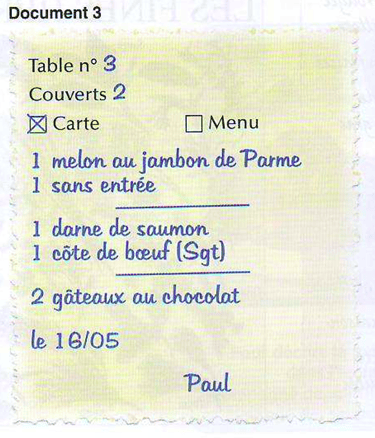 Document 3
Table n° 3
Couverts 2
☒ Carte ☐ Menu
1 melon au jambon de Parme
1 sans entrée
1 darne de saumon
1 côte de bœuf (Sgt)
2 gâteaux au chocolat
le 16/05
Paul